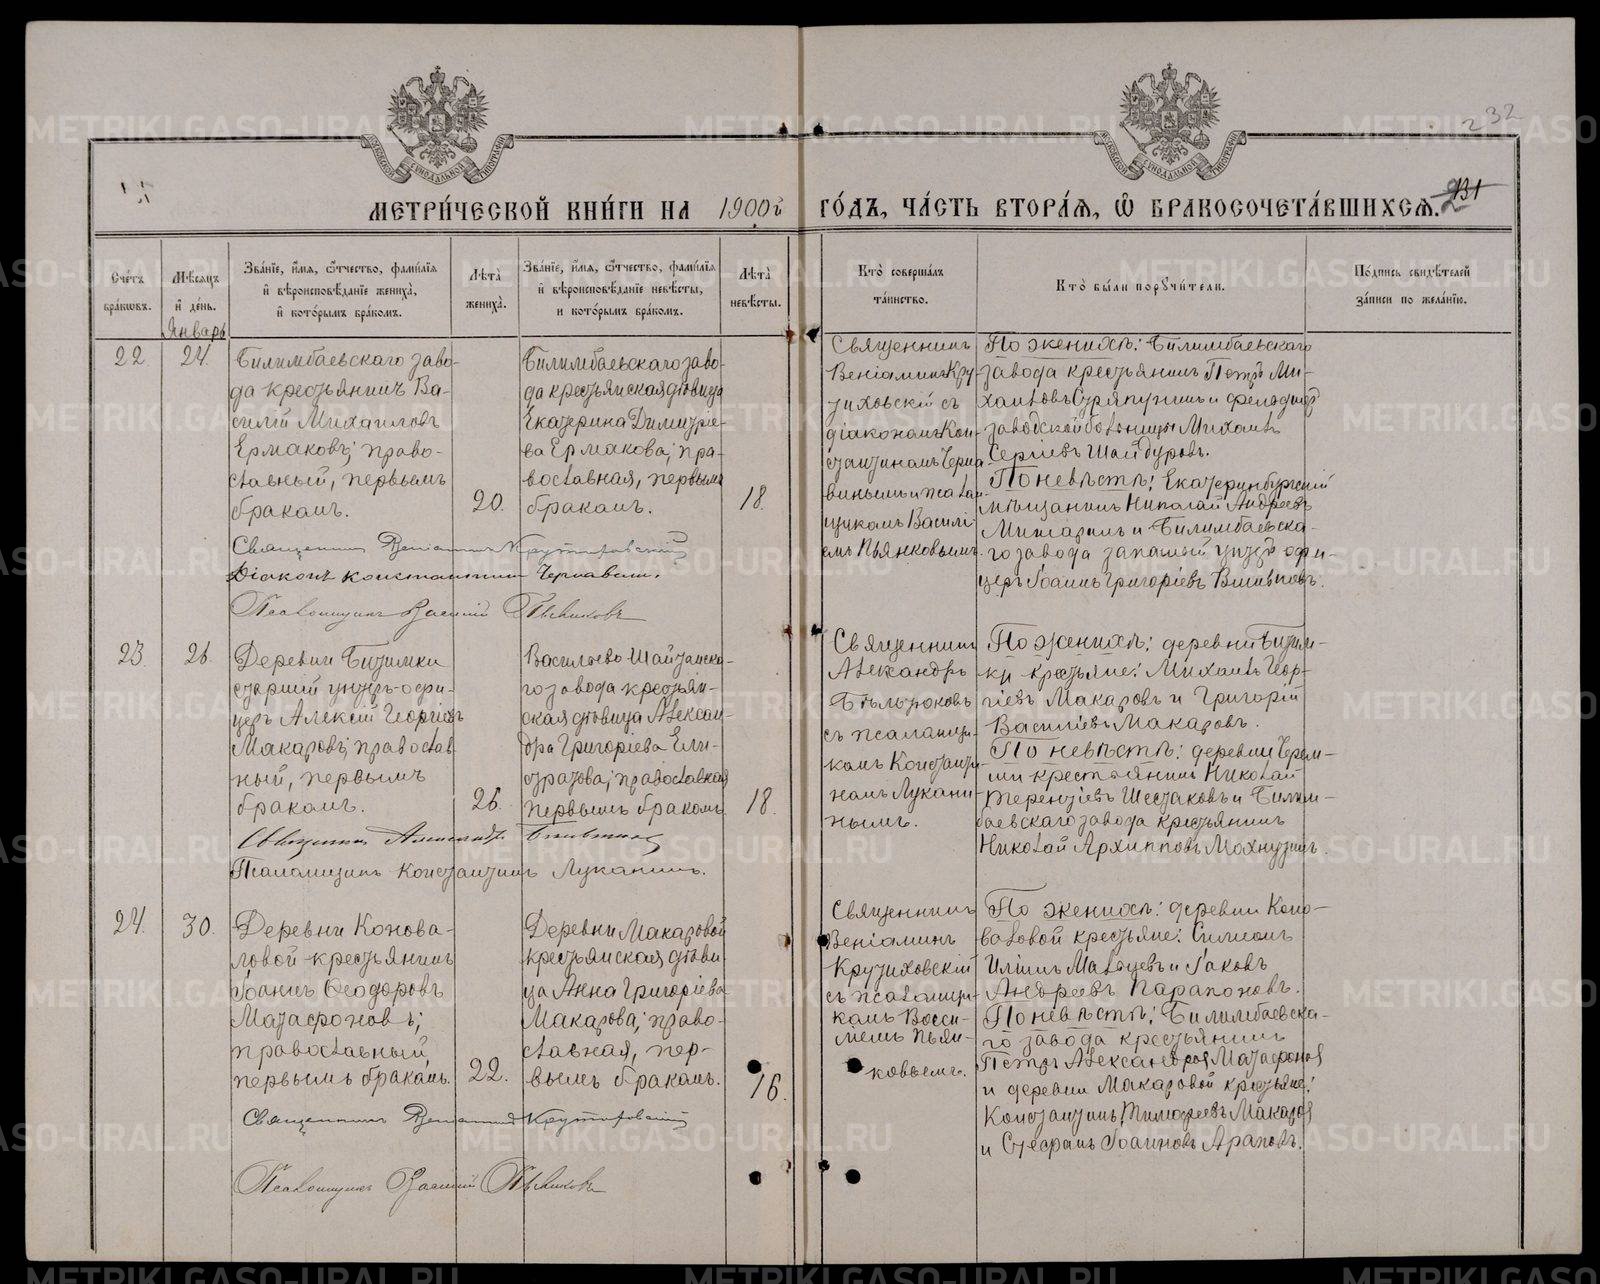 232
15
МЕТРИ́ЧЕСКОЙ КНИ́ГИ НА 1900й ГО́ДЪ, ЧА́СТЬ ВТОРА́Я, Ѡ БРАКОСОЧЕТА́ВШИХСѦ. 131
Сче́тъ бра́кωвъ.
Мѣ́сѧцъ и҆ де́нь.
Зва́нїе, и҆́мѧ, ѻ҆́тчество, фами́лїѧ и҆ вѣроисповѣ́данїе жениха̀, и҆ кото́рымъ бра́комъ.
Лѣта̀ жениха̀.
Зва́нїе, и҆́мѧ, ѻ҆́тчество, фами́лїѧ и҆ вѣроисповѣ́данїе невѣ́сты, и кото́рымъ бра́комъ.
Лѣта̀ невѣ́сты.
Кто̀ соверша́лъ та́инство.
Кто̀ бы́ли порꙋчи́тели.
По́дпись свидѣ́телей за́писи по жела́нїю.
Январь
22
24.
Билимбаевскаго заво-
да крестьянинъ Ва-
силій Михаиловъ
Ермаковъ; право-
славный, первымъ
бракомъ.
20.
Билимбаевскаго заво-
да крестьянская дѣвица
Екатерина Димитріе-
ва Ермакова; пра-
вославная, первымъ
бракомъ.
18.
Священникъ
Веніаминъ Кру-
тиховскій съ
діакономъ Кон-
стантиномъ Черна-
винымъ и псалом-
щикомъ Василі-
емъ Пьянковымъ.
По женихѣ: Билимбаевскаго
завода крестьянинъ Петръ Ми-
хаиловъ Стряпунинъ и фельдшеръ
заводской больницы Михаилъ
Сергіевъ Шайдуровъ.
По невѣстѣ: Екатеринбургскій
мѣщанинъ Николай Андреевъ
и Билимбаевска-
го завода запасный унтеръ офи-
церъ Іоаннъ Григоріевъ
Священникъ Веніаминъ Крутиховскій
Діаконъ Константинъ Чернавинъ.
Псаломщикъ Василій Пьянковъ
23.
26.
Деревни Битимки
старшій унтеръ-офи-
церъ Алексій Георгіевъ
Макаровъ; православ-
ный, первымъ
бракомъ.
26.
Васильево-Шайтанска-
го завода крестьян-
ская дѣвица Алексан-
дра Григоріева Ели-
стратова; православная
первымъ бракомъ
18.
Священникъ
Александръ
съ псаломщи-
комъ Константи-
номъ Лукани-
нымъ.
По женихѣ: деревни Битим-
ки крестьяне: Михаилъ Геор-
гіевъ Макаровъ и Григорій
Василіевъ Макаровъ.
По невѣстѣ: деревни Черем-
ши крестьянинъ Николай
Терентіевъ Шестаковъ и Билим-
баевскаго завода крестьянинъ
Николай Архипповъ Махнутинъ.
Священникъ Александръ
Псаломщикъ Константинъ Луканинъ.
24.
30.
Деревни Конова-
ловой крестьянинъ
Іоаннъ Ѳеодоровъ
Матафоновъ;
православный,
первымъ бракомъ.
22.
Деревни Макаровой
крестьянская дѣви-
ца Анна Григоріева
Макарова; право-
славная, пер-
вымъ бракомъ.
16.
Священникъ
Веніаминъ
Крутиховскій
съ псаломщи-
комъ Васи-
ліемъ Пьян-
ковымъ.
По женихѣ: деревни Коно-
валовой крестьяне: Симеонъ
Иліинъ Мальцевъ и Іаковъ
Андреевъ Парапоновъ.
По невѣстѣ: Билимбаевска-
го завода крестьянинъ
Петръ Александровъ Матафоновъ
и деревни Макаровой крестьяне:
Константинъ Тимофеевъ Макаровъ
и Стефанъ Іоанновъ Араповъ.
Священникъ Веніаминъ Крутиховскій
Псаломщикъ Василій Пьянковъ
METRIKI.GASO-URAL.RU